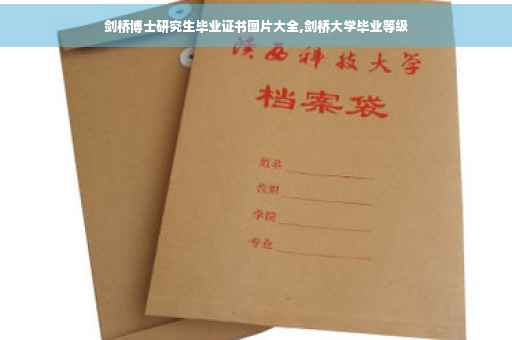 剑桥博士研究生毕业证书图片大全,剑桥大学毕业等级
陕西科技大学
档案袋
姓名
学院
专业